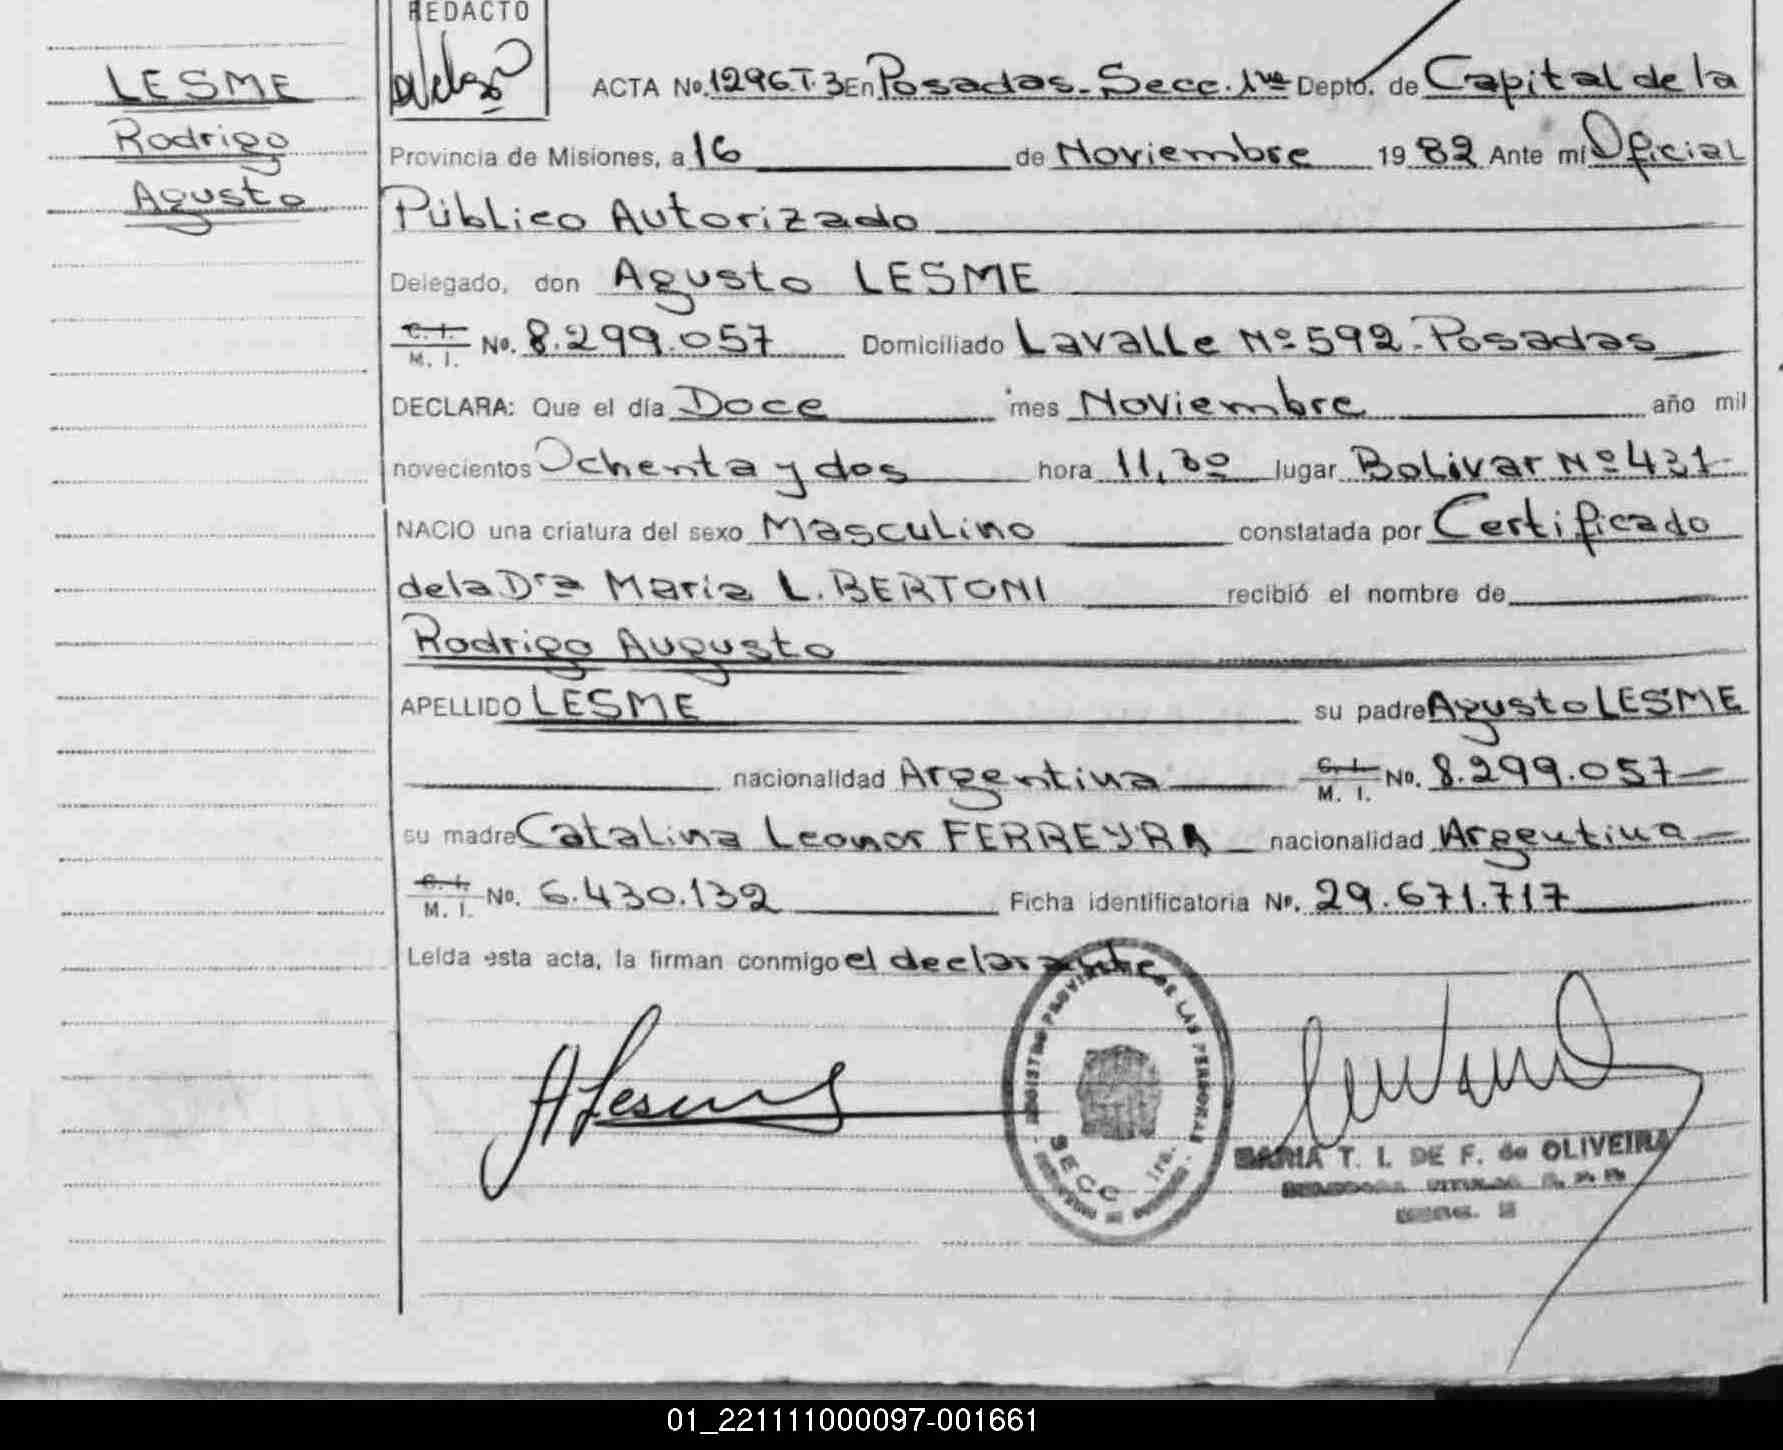 REDACTO
LESME
Rodrigo
Agusto
ACTA No. 1296 T. 3 En Posadas. Secc. 1ra Depto. de Capital de la
Provincia de Misiones, a 16 de Noviembre 1982 Ante mí Oficial
Público Autorizado
Delegado, don Agusto LESME
C. I. M. I. No. 8.299.057 Domiciliado Lavalle Nº 592. Posadas
DECLARA: Que el día Doce mes Noviembre año mil
novecientos Ochenta y dos hora 11,30 lugar Bolivar Nº 431
NACIO una criatura del sexo Masculino constatada por Certificado
de la Dra Maria L. BERTONI recibió el nombre de
Rodrigo Augusto
APELLIDO LESME su padre Agusto LESME
nacionalidad Argentina C. I. M. I. No. 8.299.057
su madre Catalina Leonor FERREYRA nacionalidad Argentina
C. I. M. I. No. 6.430.132 Ficha identificatoria No. 29.671.717
Leída esta acta, la firman conmigo el declarante
A Lesme
REGISTRO PROVINCIAL DE LAS PERSONAS
SECC. 1ra.
MARIA T. I. DE F. de OLIVEIRA
01_221111000097-001661